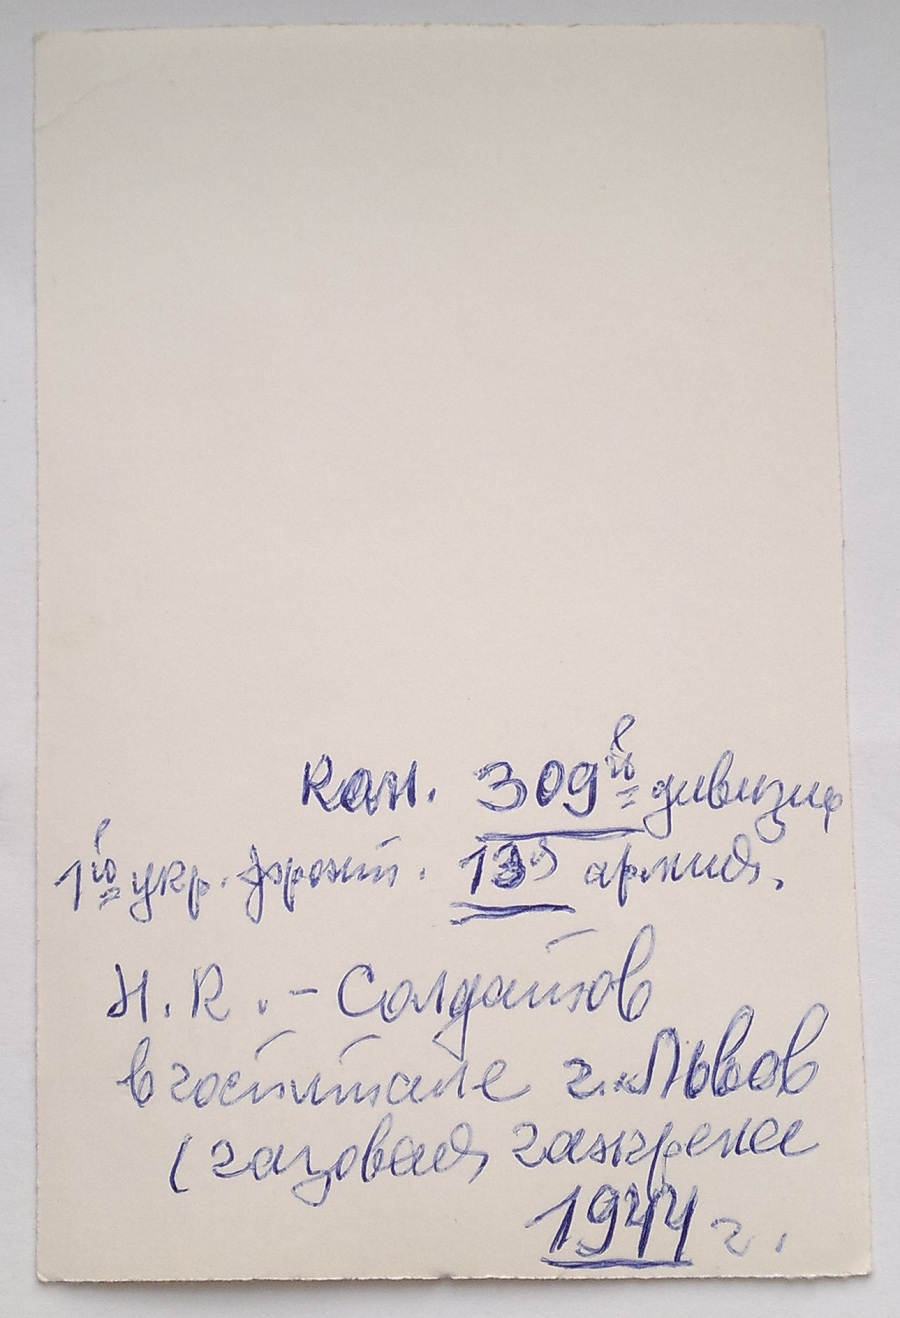 Кан. 309й дивизии
1й укр. фронт. 13я армия.
Н. К. - Солдатов
в госпитале г. Львов
(газовая гангрена
1944 г.